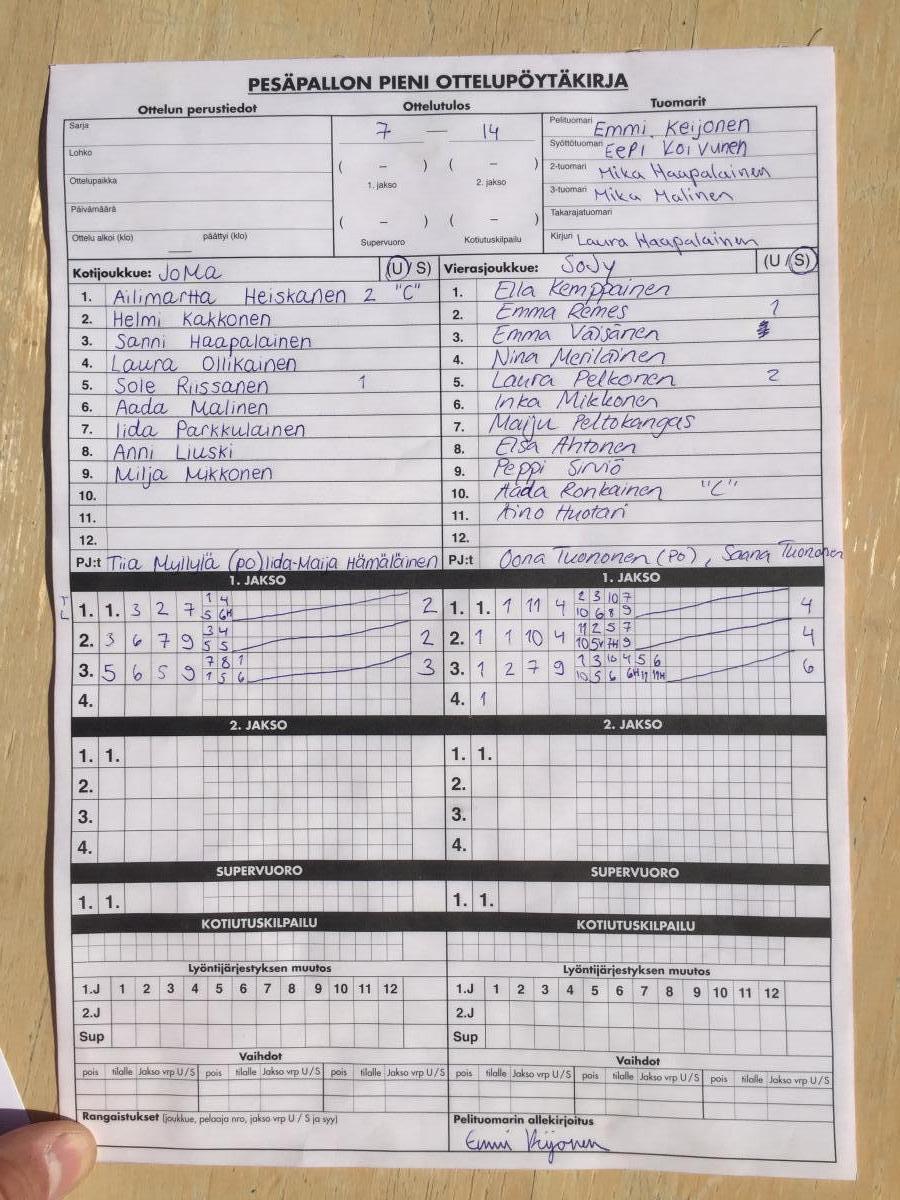 PESÄPALLON PIENI OTTELUPÖYTÄKIRJA
Ottelun perustiedot
Sarja
Lohko
Ottelupaikka
Päivämäärä
Ottelu alkoi (klo) päättyi (klo)
Ottelutulos
7 — 14
( – ) ( – )
1. jakso 2. jakso
( – ) ( – )
Supervuoro Kotiutuskilpailu
Tuomarit
Pelituomari Emmi Keijonen
Syöttötuomari EePi Koivunen
2-tuomari Mika Haapalainen
3-tuomari Mika Malinen
Takarajatuomari
Kirjuri Laura Haapalainen
Kotijoukkue: JoMa (U/S)
1. Ailimartta Heiskanen 2 "C"
2. Helmi Kakkonen
3. Sanni Haapalainen
4. Laura Ollikainen
5. Sole Riissanen 1
6. Aada Malinen
7. Iida Parkkulainen
8. Anni Liuski
9. Milja Mikkonen
10.
11.
12.
PJ:t Tiia Myllylä (po) Iida-Maija Hämäläinen
Vierasjoukkue: SoJy (U/S)
1. Ella Kemppainen
2. Emma Remes 1
3. Emma Väisänen
4. Nina Meriläinen
5. Laura Pelkonen 2
6. Inka Mikkonen
7. Maiju Peltokangas
8. Elsa Ahtonen
9. Peppi Sirviö
10. Aada Ronkainen "C"
11. Aino Huotari
12.
PJ:t Oona Tuononen (PO), Saana Tuononen
1. JAKSO
1. 1. 3 2 7 1 4 2
5 6H
2. 3 6 7 9 3 4 2
5 5
3. 5 6 5 9 7 8 1 3
1 5 6
4.
1. JAKSO
1. 1. 1 11 4 2 3 10 7 4
10 6 8 9
2. 1 1 10 4 11 2 5 7 4
10 5V 7H 9
3. 1 2 7 9 1 3 10 4 5 6 6
10 5 6 6H 11 11H
4. 1
2. JAKSO
1. 1.
2.
3.
4.
2. JAKSO
1. 1.
2.
3.
4.
SUPERVUORO
1. 1.
SUPERVUORO
1. 1.
KOTIUTUSKILPAILU
KOTIUTUSKILPAILU
Lyöntijärjestyksen muutos
1.J 1 2 3 4 5 6 7 8 9 10 11 12
2.J
Sup
Lyöntijärjestyksen muutos
1.J 1 2 3 4 5 6 7 8 9 10 11 12
2.J
Sup
Vaihdot
pois tilalle Jakso vrp U/S pois tilalle Jakso vrp U/S pois tilalle Jakso vrp U/S
Vaihdot
pois tilalle Jakso vrp U/S pois tilalle Jakso vrp U/S pois tilalle Jakso vrp U/S
Rangaistukset (joukkue, pelaaja nro, jakso vrp U / S ja syy)
Pelituomarin allekirjoitus
Emmi Keijonen